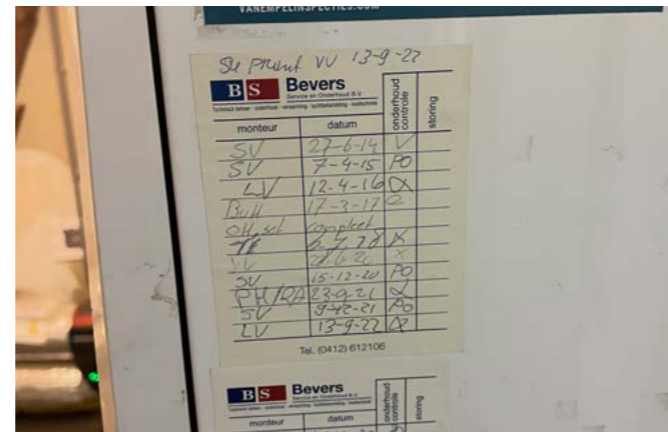 VANEMPELINSPECTIES.COM
VV 13-9-22
BS Bevers
Service en Onderhoud B.V.
monteur datum onderhoud controle storing
SV 27-6-14 V
SV 7-4-15 PO
LV 12-4-16
17-3-17
compleet
SV 15-12-20 PO
PM/RA 23-9-21
SV 9-12-21 PO
LV 13-9-22
Tel. (0412) 612106
BS Bevers
Service en Onderhoud B.V.
monteur datum onderhoud controle storing